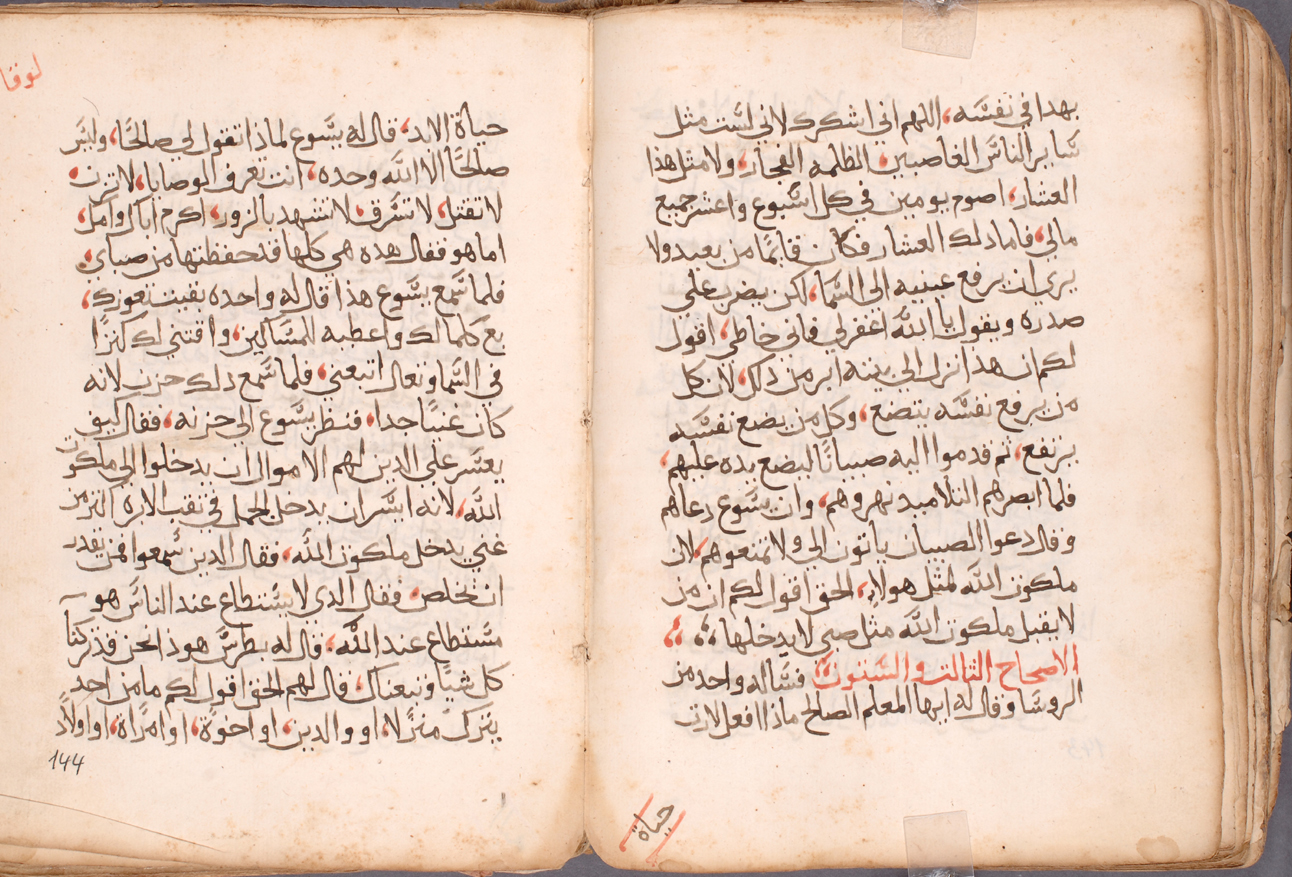 بهدا في نفسه، اللهم اني اشكرك لاني لست مثل
ساير الناس الغاصبين، الظلمه الفجار، ولا مثل هذا
العشار، اصوم يومين في كل اسبوع واعشر جميع
مالي، فاما دلك العشار فكان قايمًا من بعيد ولا
يري ان يرفع عينيه الى السما، لكن يضرب علي
صدره ويقول يا الله اغفر لي فاني خاطي، اقول
لكم ان هذا نزل الى بيته ابر من ذلك، لان كل
من يرفع نفسه يتضع، وكل من يضع نفسه
يرتفع، ثم قدموا اليه صبيانًا ليضع يده عليهم،
فلما ابصرهم التلاميد نهروهم، وان يسوع دعاهم
وقال دعوا الصبيان ياتون الي ولا تمنعوهم، لان
ملكوت الله لمثل هولاء، الحق اقول لكم ان من
لا يقبل ملكوت الله مثل صبي لا يدخلها،
الاصحاح التالت والستون فساله واحد من
الروسا وقال له ايها المعلم الصالح ماذا افعل لارت
حياة
لوقا
حياة الابد، قال له يسوع لماذا تقول لي صالحًا، وليس
صالحًا الا الله وحده، انت تعرف الوصايا، لا تزن
لا تقتل، لا تسرق، لا تشهد بالزور، اكرم اباك وامك،
اما هو فقال هده هي كلها قد حفظتها من صباي،
فلما سمع يسوع هذا قال له واحده بقيت تعوزك،
بع كلما لك واعطيه للمساكين، واقتني لك كنزًا
في السما وتعال اتبعني، فلما سمع دلك حزن لانه
كان غنيًا جدا، فنظر يسوع الى حزنه، فقال كيف
يعسر علي الدين لهم الاموال ان يدخلوا الي ملكوت
الله، لانه ايسر ان يدخل الجمل في ثقب الابره اكتر من
غني يدخل ملكوت الله، فقال الدين سمعوا فمن يقدر
ان يخلص، فقال الدي لا يستطاع عند الناس هو
مستطاع عند الله، قال له بطرس هوذا نحن قد تركنا
كل شيًا وتبعناك، قال لهم الحق اقول لكم ما من احد
يترك منزلا، او والدين، او اخوة، او امراة، او اولاد
144